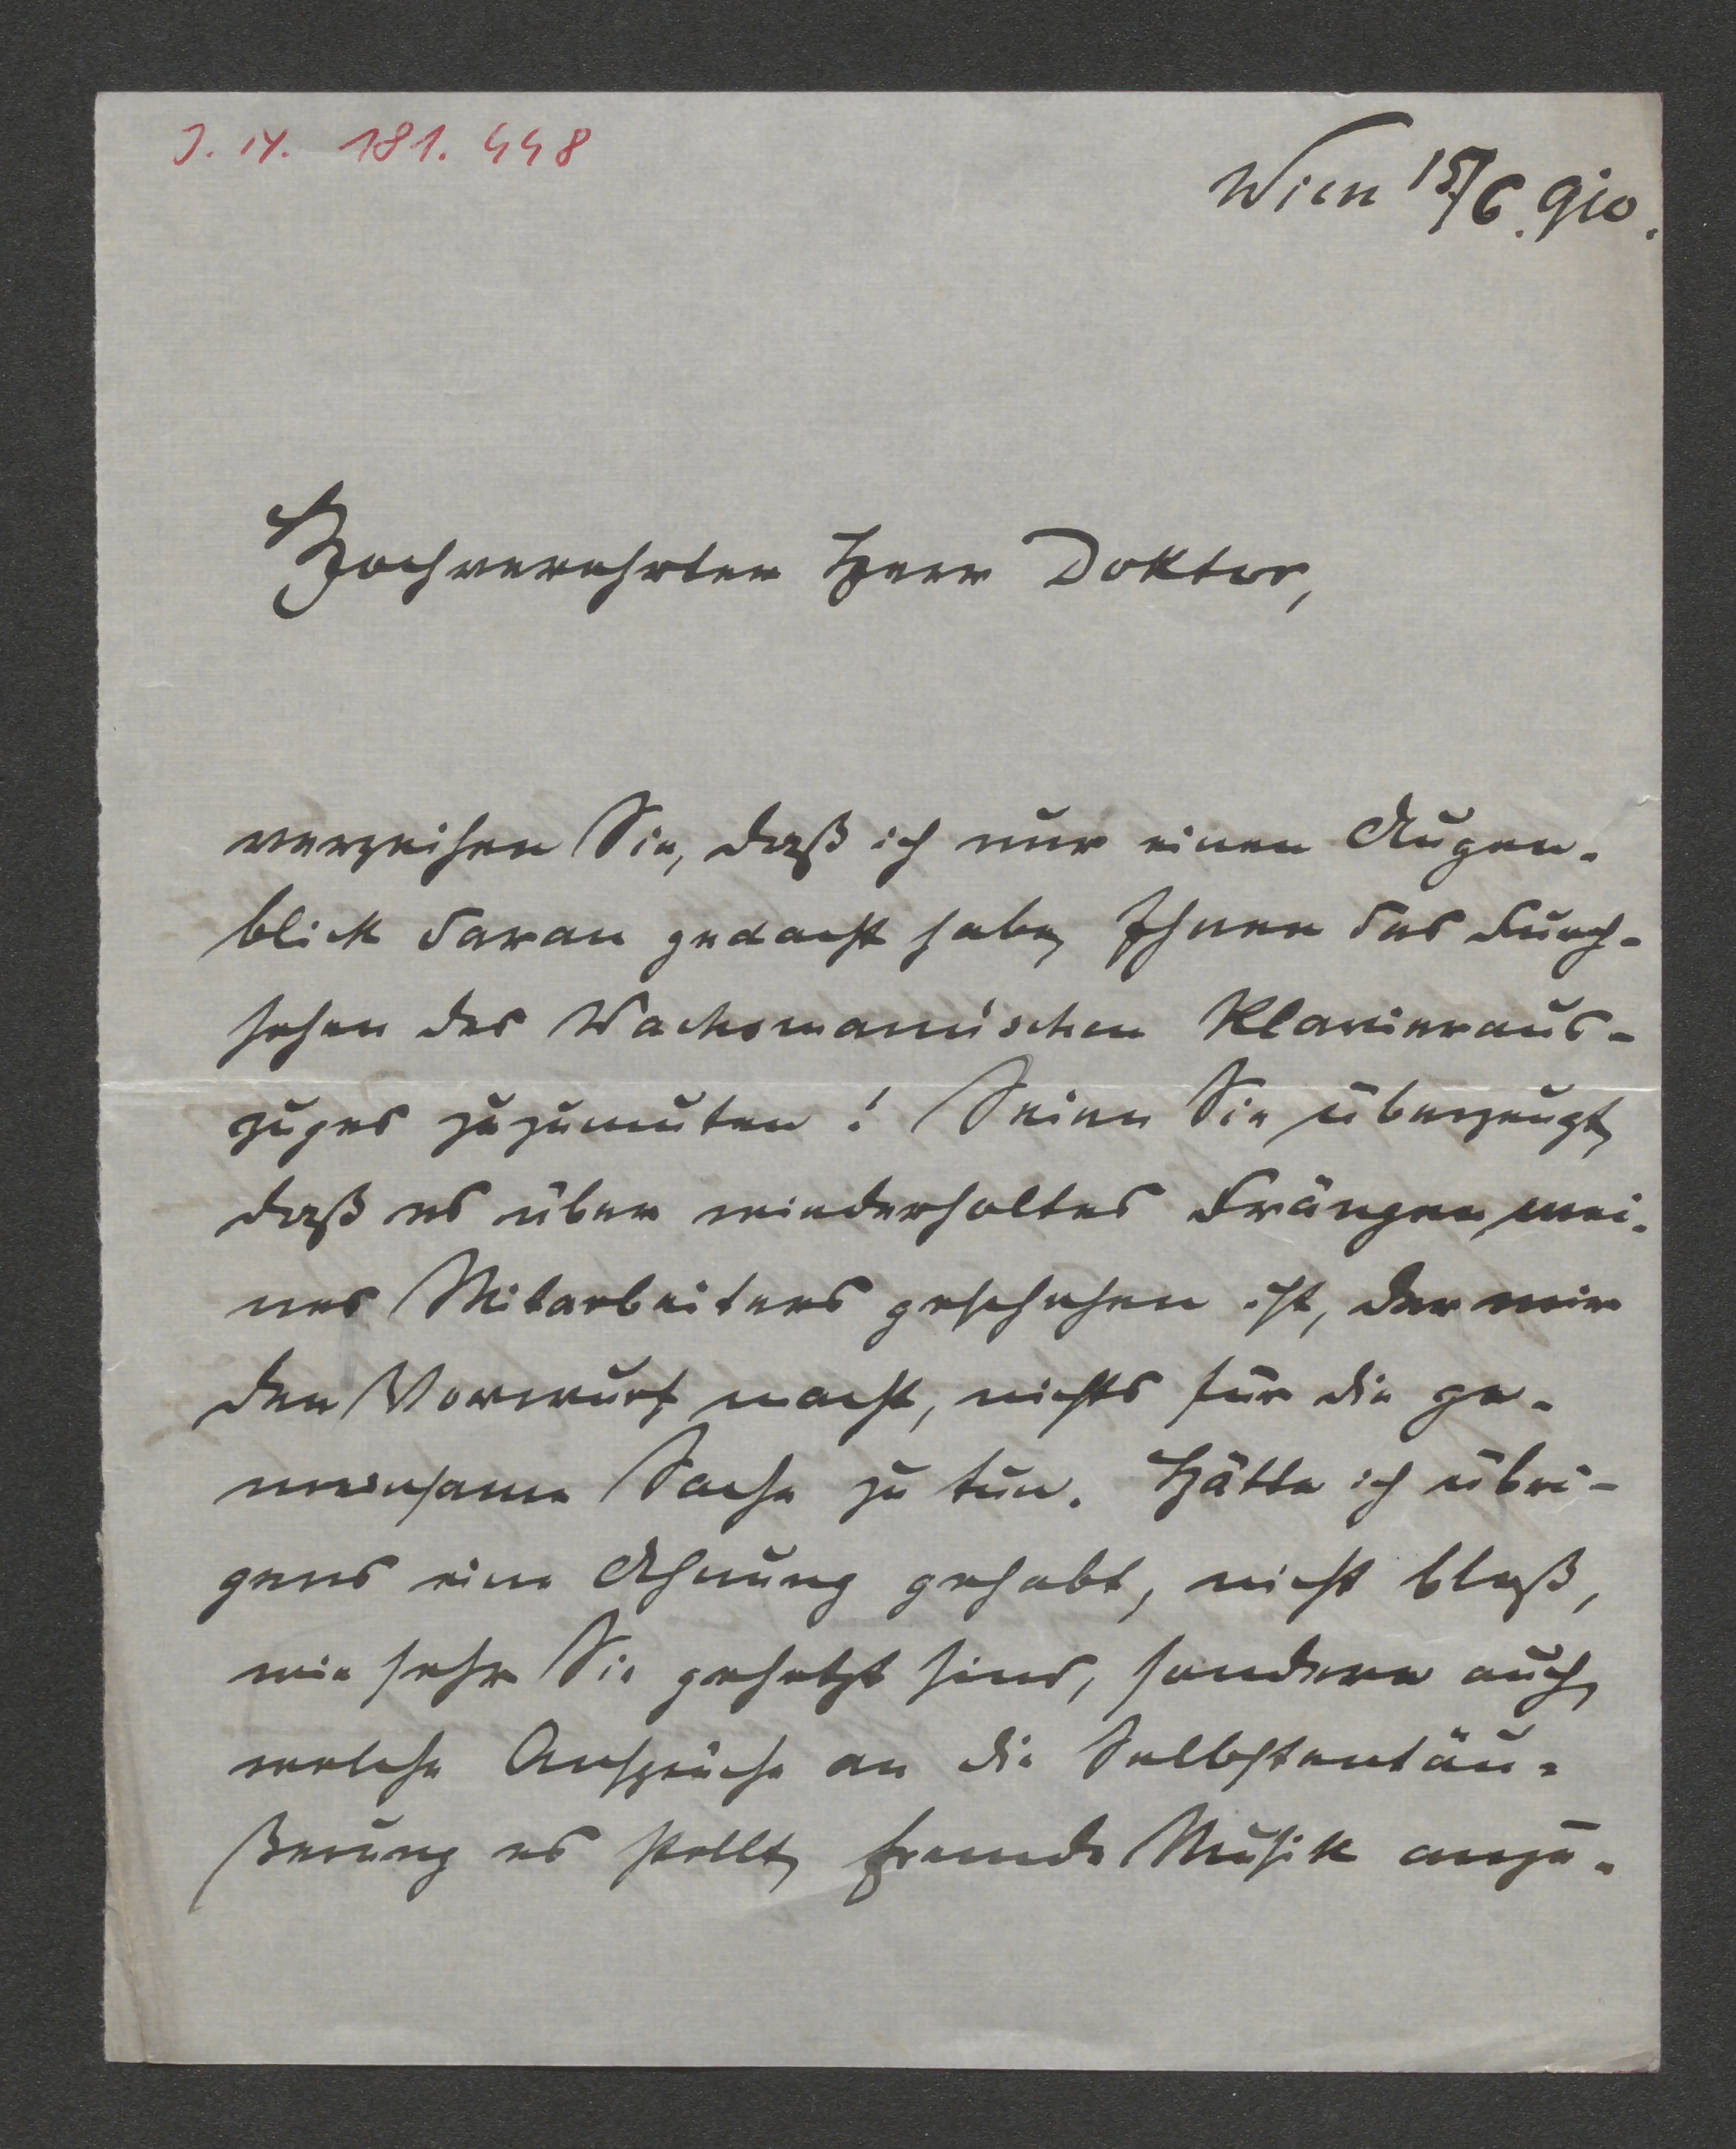 J. N. 181.448
Wien 15/6. 910.
Hochverehrter Herr Doktor,
verzeihen Sie, daß ich nur einen Augen-
blick daran gedacht habe, Ihnen das Durch-
sehen des Wachsmannischen Klavieraus-
zuges zuzumuten! Seien Sie überzeugt,
daß es über wiederholtes Drängen mei-
nes Mitarbeiters geschehen ist, der mir
den Vorwurf macht, nichts für die ge-
meinsame Sache zu tun. Hätte ich übri-
gens eine Ahnung gehabt, nicht bloß,
wie sehr Sie gehetzt sind, sondern auch,
welche Ansprüche an die Selbstentäu-
ßerung es stellt, fremde Musik anzu-